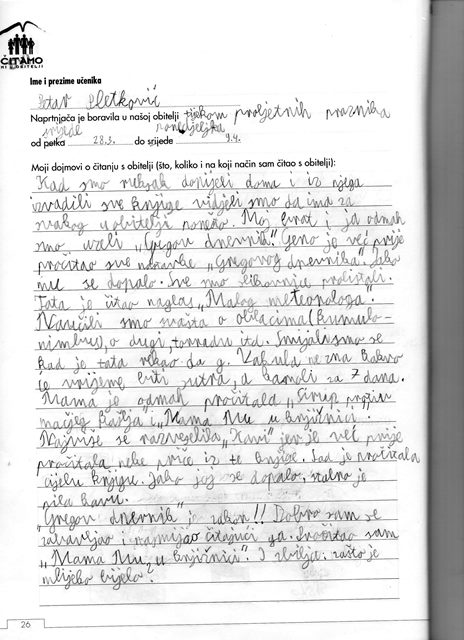 ČITAMO
MI U OBITELJI
Ime i prezime učenika
Pletković
Naprtnjača je boravila u našoj obitelji tijekom proljetnih praznika
srijede ponedjeljka
od petka 28.3. do srijede 9.4.
Moji dojmovi o čitanju s obitelji (što, koliko i na koji način sam čitao s obitelji):
Kad smo ruksak donijeli doma i iz njega
izvadili sve knjige vidjeli smo da ima za
svakog u obitelji ponešto. Moj brat i ja odmah
smo uzeli „Gregov dnevnik". Geno je već prije
pročitao sve nastavke „Gregovog dnevnika". Jako
mu se dopalo. Sve smo slikovnice pročitali.
Tata je čitao naglas „Malog meteorologa".
Naučili smo svašta o oblacima (kumulo-
nimbus), o dugi, tornadu itd. Smijali smo se
kad je tata rekao da g. Vakula ne zna kakvo
će vrijeme biti sutra, a kamoli za 7 dana.
Mama je odmah pročitala „Sirup protiv
mačjeg kašlja" i „Mama Mu u knjižnici".
Najviše se razveselila „Kavi" jer je već prije
pročitala neke priče iz te knjige. Sad je pročitala
cijelu knjigu. Jako joj se dopalo, stalno je
pila kavu.
„Gregov dnevnik" je zakon!! Dobro sam se
zabavljao i nasmijao čitajući ga. Pročitao sam
i „Mama Mu u knjižnici". I zbilja: zašto je
mlijeko bijelo?
26